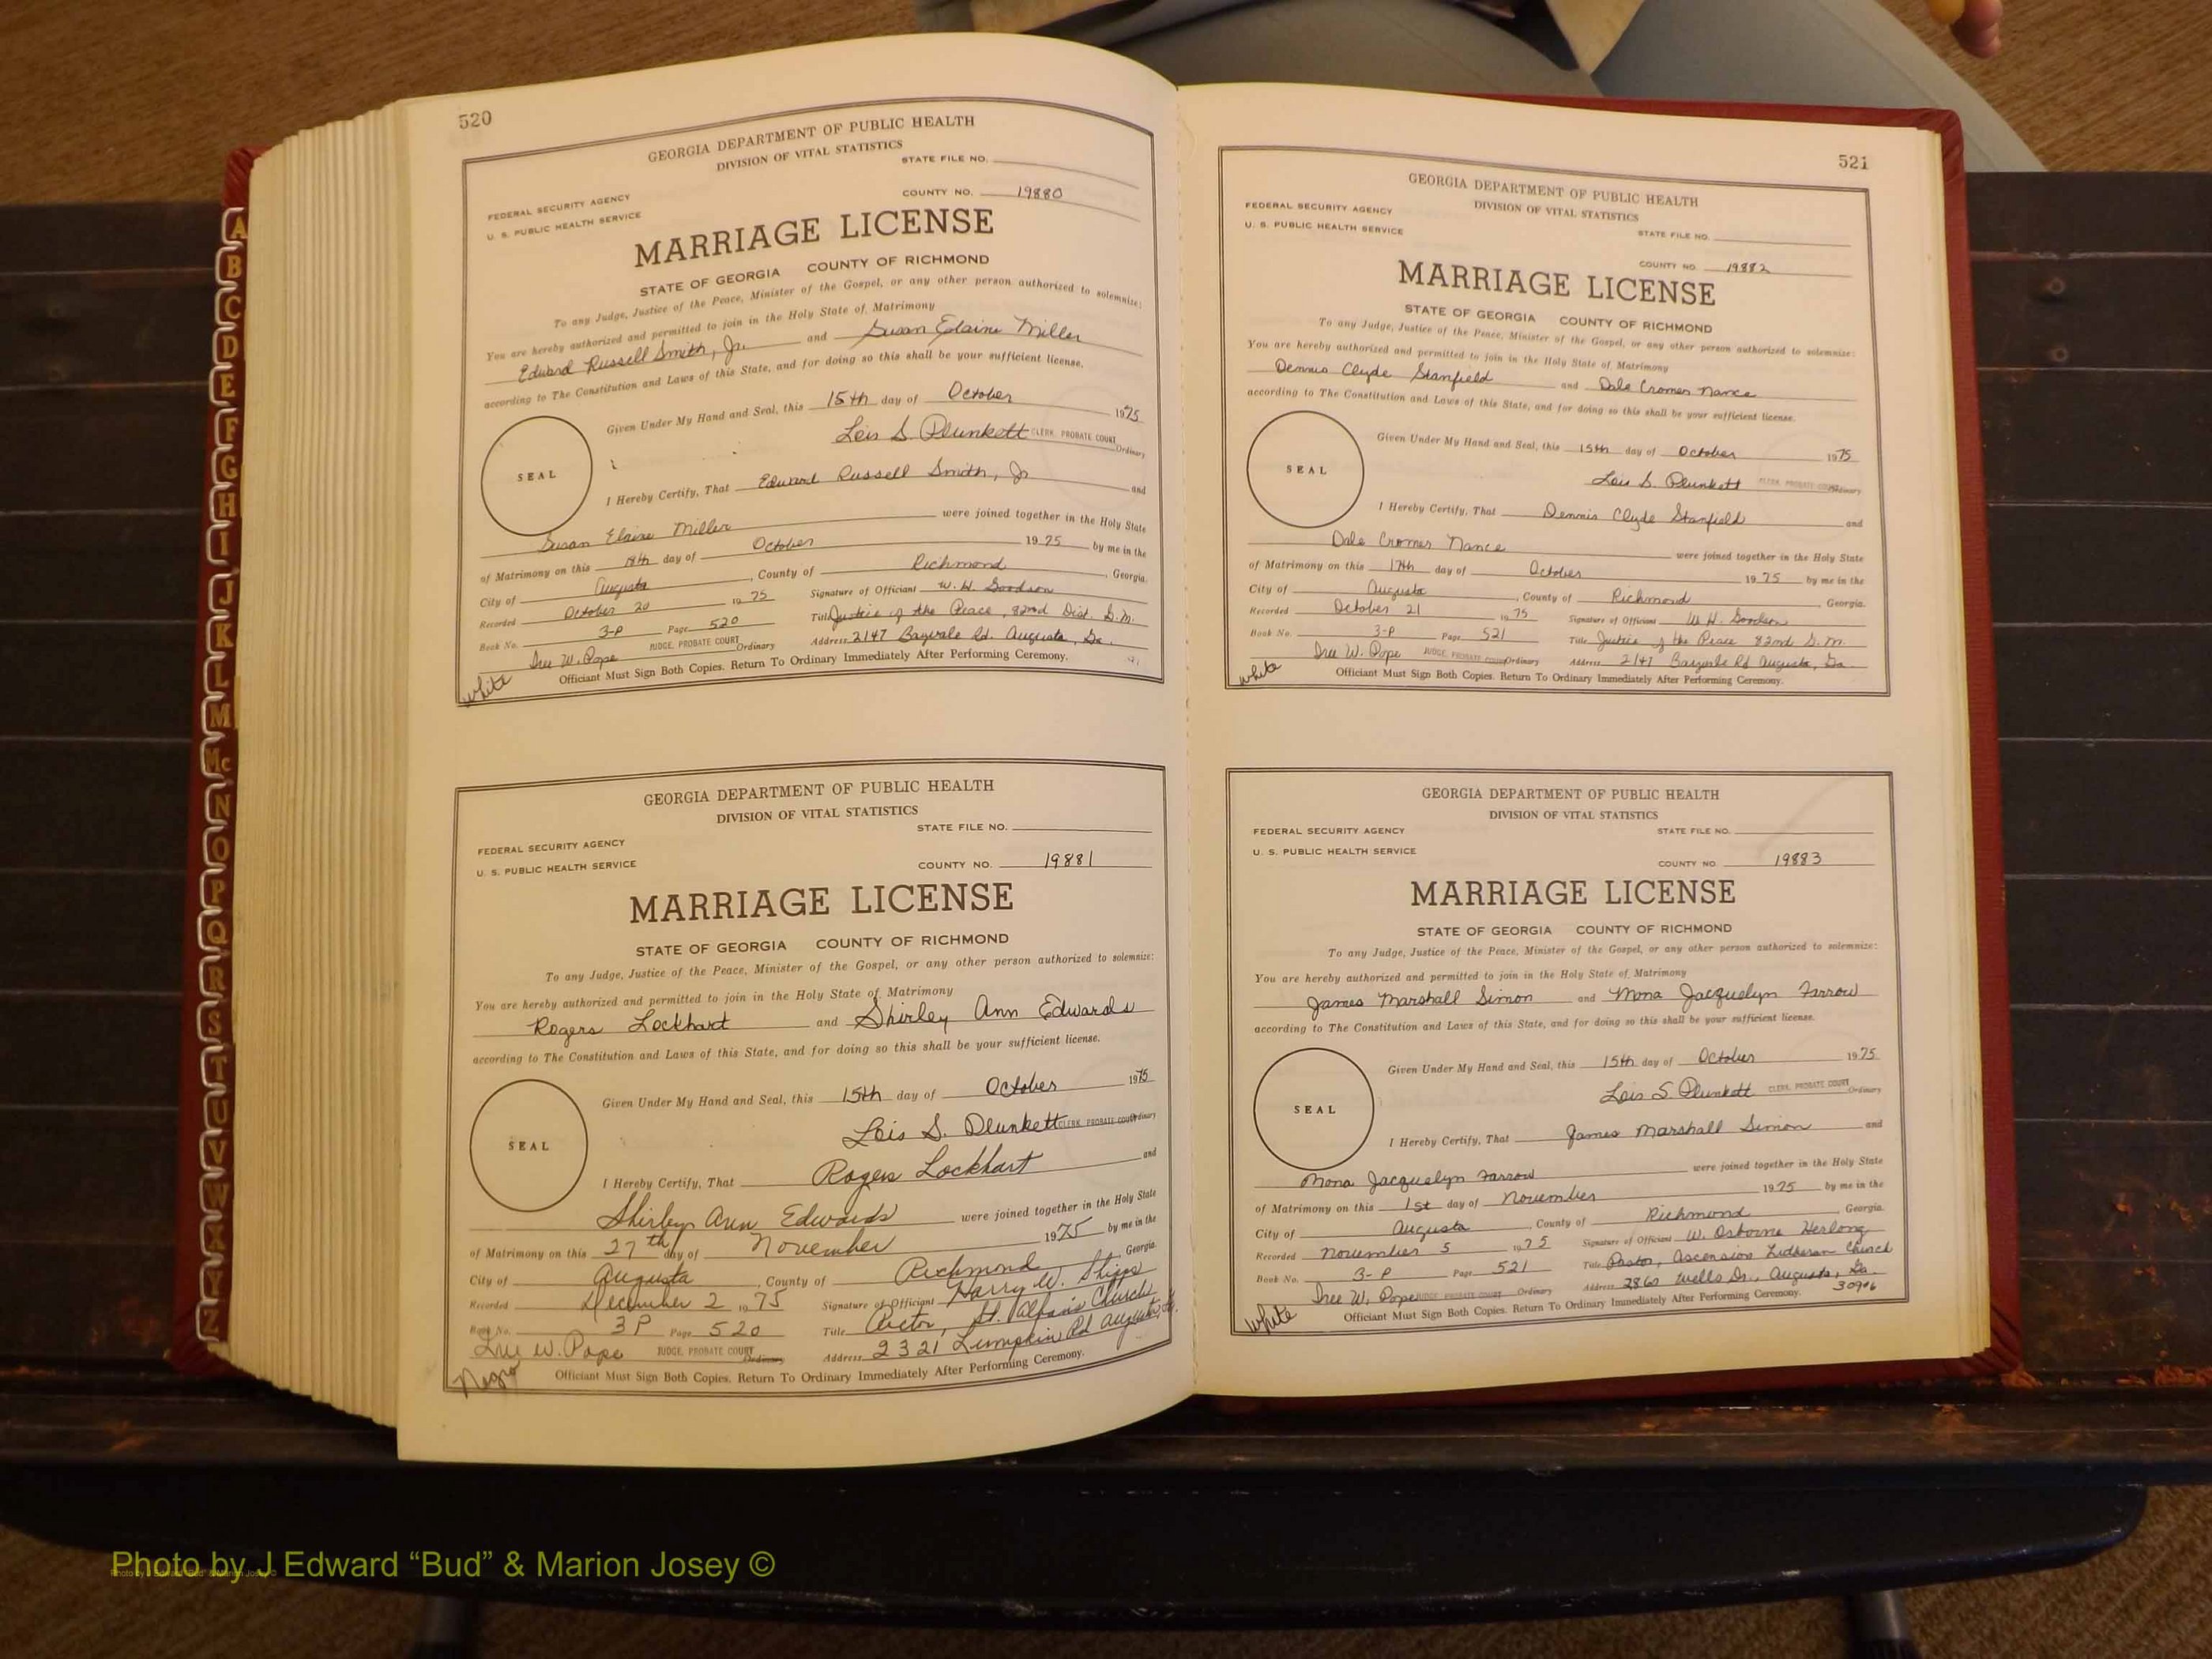 520
GEORGIA DEPARTMENT OF PUBLIC HEALTH
DIVISION OF VITAL STATISTICS
STATE FILE NO.
FEDERAL SECURITY AGENCY
COUNTY NO. 19880
U. S. PUBLIC HEALTH SERVICE
MARRIAGE LICENSE
STATE OF GEORGIA COUNTY OF RICHMOND
To any Judge, Justice of the Peace, Minister of the Gospel, or any other person authorized to solemnize:
You are hereby authorized and permitted to join in the Holy State of Matrimony
Edward Russell Smith, Jr. and Susan Elaine Miller
according to The Constitution and Laws of this State, and for doing so this shall be your sufficient license.
Given Under My Hand and Seal, this 15th day of October 1975
Lois S Plunkett CLERK, PROBATE COURT Ordinary
SEAL
I Hereby Certify, That Edward Russell Smith, Jr and
Susan Elaine Miller were joined together in the Holy State
of Matrimony on this 18th day of October 1975 by me in the
City of Augusta, County of Richmond, Georgia.
Recorded October 20 1975 Signature of Officiant W. H. Goodson
Book No. 3-P Page 520 Title Justice of the Peace, 82nd Dist. G.M.
Iree W. Pope JUDGE, PROBATE COURT Ordinary Address 2147 Bayvale Rd. Augusta, Ga.
Officiant Must Sign Both Copies. Return To Ordinary Immediately After Performing Ceremony.
white
GEORGIA DEPARTMENT OF PUBLIC HEALTH
DIVISION OF VITAL STATISTICS
STATE FILE NO.
FEDERAL SECURITY AGENCY
COUNTY NO. 19881
U. S. PUBLIC HEALTH SERVICE
MARRIAGE LICENSE
STATE OF GEORGIA COUNTY OF RICHMOND
To any Judge, Justice of the Peace, Minister of the Gospel, or any other person authorized to solemnize:
You are hereby authorized and permitted to join in the Holy State of Matrimony
Rogers Lockhart and Shirley Ann Edwards
according to The Constitution and Laws of this State, and for doing so this shall be your sufficient license.
Given Under My Hand and Seal, this 15th day of October 1975
Lois S. Plunkett CLERK, PROBATE COURT Ordinary
SEAL
I Hereby Certify, That Rogers Lockhart and
Shirley Ann Edwards were joined together in the Holy State
of Matrimony on this 27th day of November 1975 by me in the
City of Augusta, County of Richmond, Georgia
Recorded December 2 1975 Signature of Officiant Harry W. Shipps
Book No. 3P Page 520 Title Rector, St. Alban's Church
Iree W. Pope JUDGE, PROBATE COURT Ordinary Address 2321 Lumpkin Rd Augusta,
Officiant Must Sign Both Copies. Return To Ordinary Immediately After Performing Ceremony.
Negro
521
GEORGIA DEPARTMENT OF PUBLIC HEALTH
DIVISION OF VITAL STATISTICS
FEDERAL SECURITY AGENCY
STATE FILE NO.
U. S. PUBLIC HEALTH SERVICE
COUNTY NO. 19882
MARRIAGE LICENSE
STATE OF GEORGIA COUNTY OF RICHMOND
To any Judge, Justice of the Peace, Minister of the Gospel, or any other person authorized to solemnize:
You are hereby authorized and permitted to join in the Holy State of Matrimony
Dennis Clyde Stanfield and Dale Cromer Nance
according to The Constitution and Laws of this State, and for doing so this shall be your sufficient license.
Given Under My Hand and Seal, this 15th day of October 1975
Lois S. Plunkett CLERK, PROBATE COURT Ordinary
SEAL
I Hereby Certify, That Dennis Clyde Stanfield and
Dale Cromer Nance were joined together in the Holy State
of Matrimony on this 17th day of October 1975 by me in the
City of Augusta, County of Richmond, Georgia.
Recorded October 21 1975 Signature of Officiant W. H. Goodson
Book No. 3-P Page 521 Title Justice of the Peace 82nd G.M.
Iree W. Pope JUDGE, PROBATE COURT Ordinary Address 2147 Bayvale Rd Augusta, Ga.
Officiant Must Sign Both Copies. Return To Ordinary Immediately After Performing Ceremony.
white
GEORGIA DEPARTMENT OF PUBLIC HEALTH
DIVISION OF VITAL STATISTICS
FEDERAL SECURITY AGENCY
STATE FILE NO.
U. S. PUBLIC HEALTH SERVICE
COUNTY NO. 19883
MARRIAGE LICENSE
STATE OF GEORGIA COUNTY OF RICHMOND
To any Judge, Justice of the Peace, Minister of the Gospel, or any other person authorized to solemnize:
You are hereby authorized and permitted to join in the Holy State of Matrimony
James Marshall Simon and Mona Jacquelyn Farrow
according to The Constitution and Laws of this State, and for doing so this shall be your sufficient license.
Given Under My Hand and Seal, this 15th day of October 1975
Lois S. Plunkett CLERK, PROBATE COURT Ordinary
SEAL
I Hereby Certify, That James Marshall Simon and
Mona Jacquelyn Farrow were joined together in the Holy State
of Matrimony on this 1st day of November 1975 by me in the
City of Augusta, County of Richmond, Georgia.
Recorded November 5 1975 Signature of Officiant W. Osborne Herlong
Book No. 3-P Page 521 Title Pastor, Ascension Lutheran Church
Iree W. Pope JUDGE PROBATE COURT Ordinary Address 2860 Wells Dr., Augusta, Ga. 30906
Officiant Must Sign Both Copies. Return To Ordinary Immediately After Performing Ceremony.
white
A
B
C
D
E
F
G
H
I
J
K
L
M
Mc
N
O
P
Q
R
S
T
U
V
W
X
Y
Z
Photo by J Edward “Bud” & Marion Josey ©